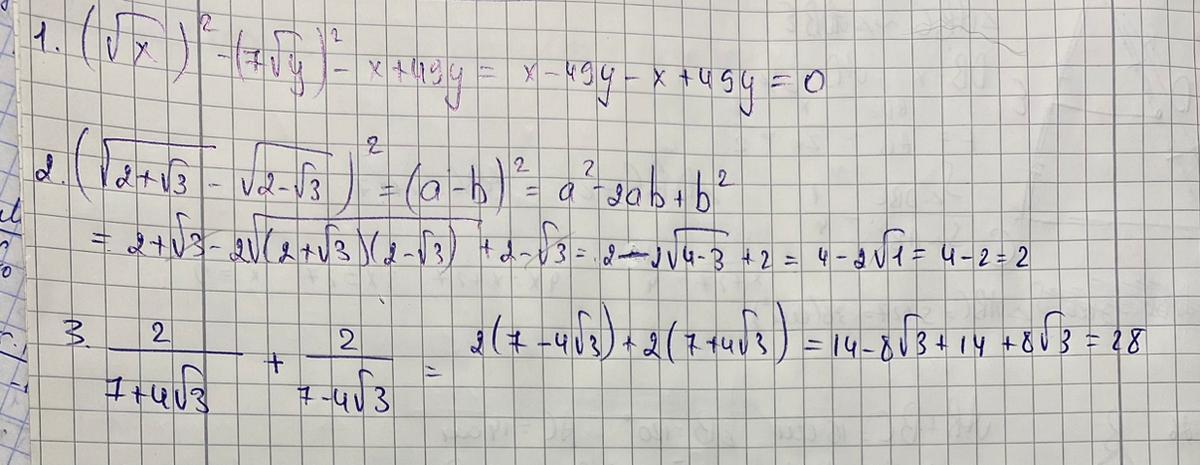 1. (√x)² - (7√y)² - x + 49y = x - 49y - x + 49y = 0
2. (√(2+√3) - √(2-√3))² = (a - b)² = a² - 2ab + b²
= 2+√3 - 2√((2+√3)(2-√3)) + 2-√3 = 2 - 2√(4-3) + 2 = 4 - 2√1 = 4 - 2 = 2
3. 2/(7+4√3) + 2/(7-4√3) = 2(7-4√3) + 2(7+4√3) = 14 - 8√3 + 14 + 8√3 = 28